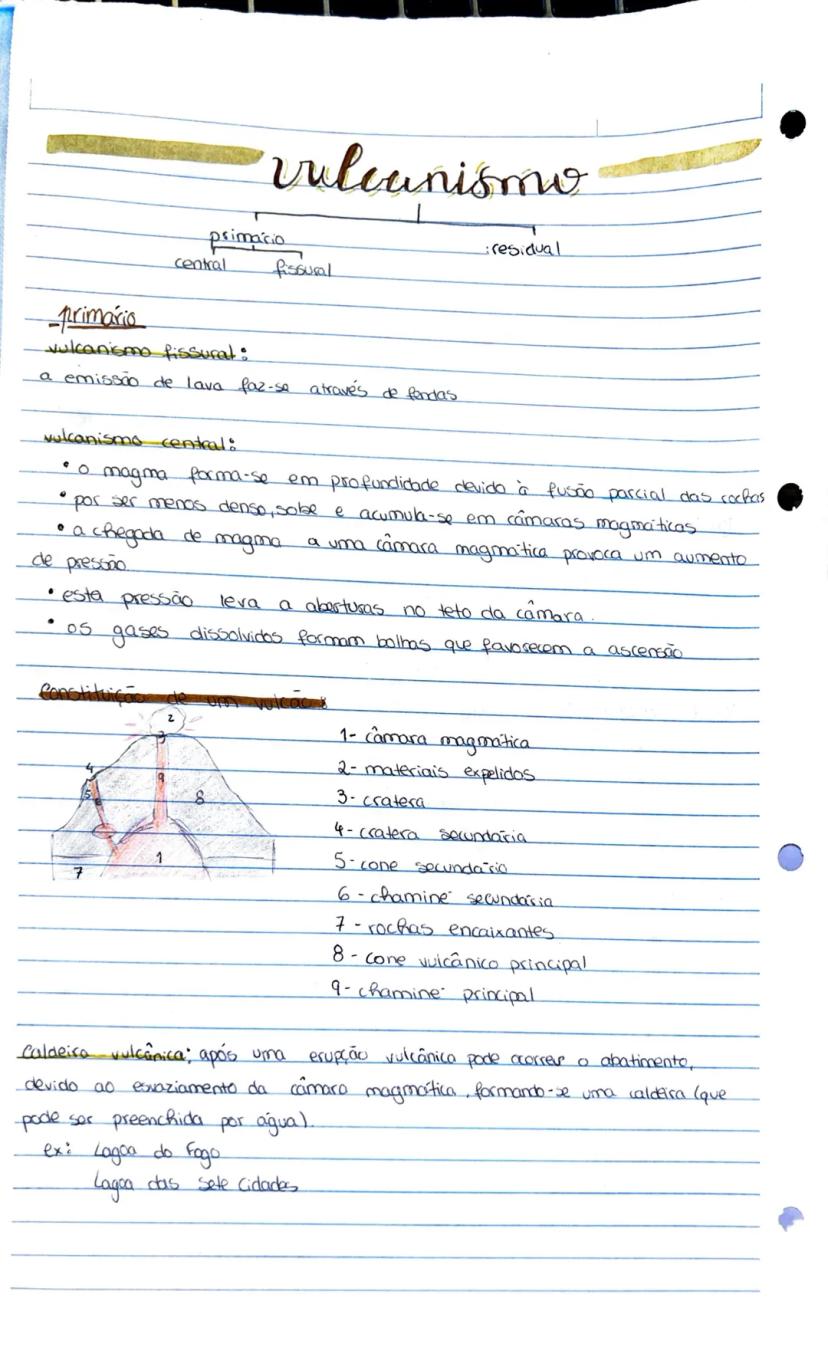 vulcanismo
primário
:residual
central fissural
-primário
vulcanismo fissural:
a emissão de lava faz-se através de fendas
vulcanismo central:
• o magma forma-se em profundidade devido à fusão parcial das rochas
• por ser menos denso, sobe e acumula-se em câmaras magmáticas
• a chegada de magma a uma câmara magmática provoca um aumento
de pressão
• esta pressão leva a aberturas no teto da câmara.
• os gases dissolvidos formam bolhas que favorecem a ascensão
Constituição de um vulcão:
2
3
4
9
5
8
1
7
1- câmara magmática
2- materiais expelidos
3- cratera
4- cratera secundária
5- cone secundário
6- chaminé secundária
7- rochas encaixantes
8- cone vulcânico principal
9- chaminé principal
Caldeira vulcânica: após uma erupção vulcânica pode ocorrer o abatimento,
devido ao esvaziamento da câmara magmática, formando-se uma caldeira (que
pode ser preenchida por água).
ex: Lagoa do Fogo
Lagoa das Sete Cidades